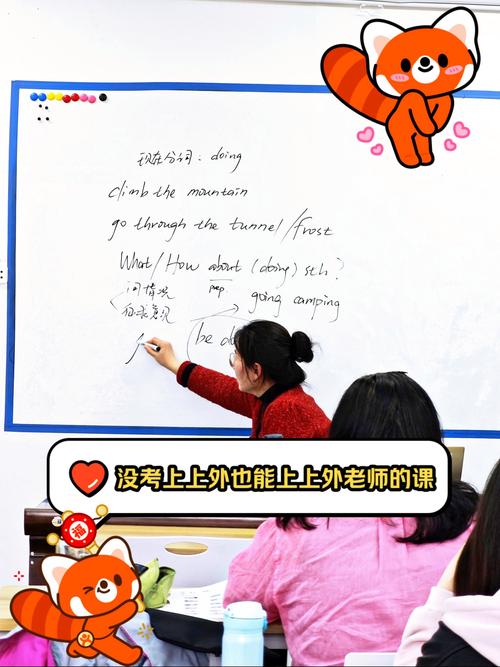 现在分词：doing
climb the mountain
go through the tunnel/frost
What/How about (doing) sth?
问情况
prep.
going camping
征求意见
be do
没考上上外也能上上外老师的课
福